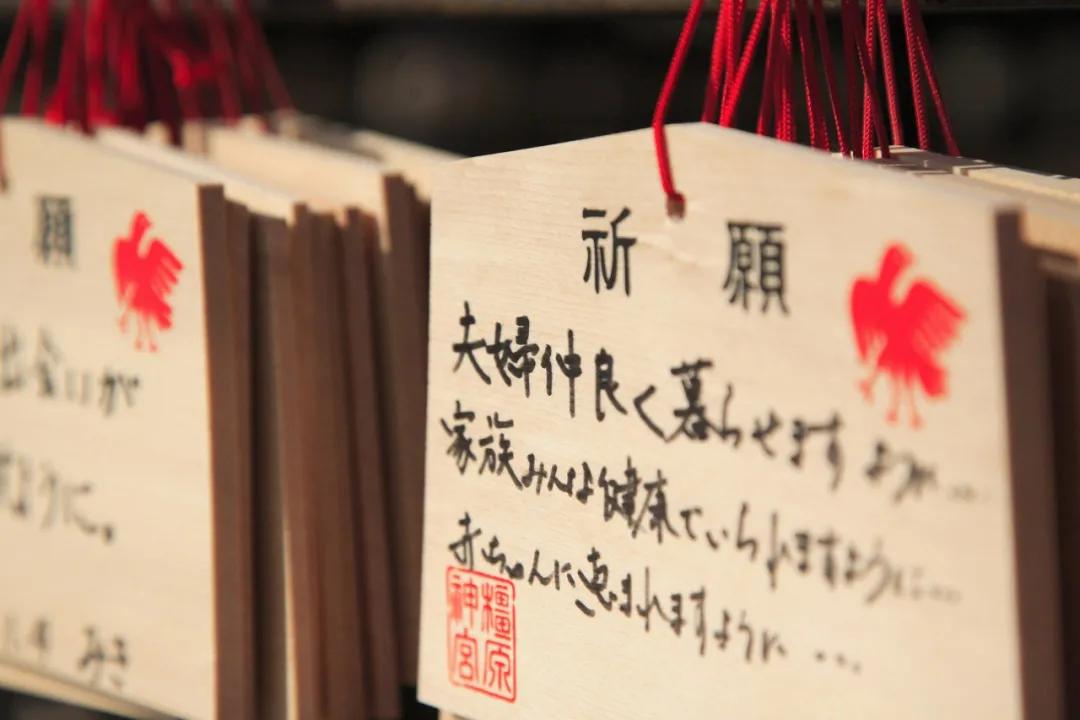 願
出会いが
ように。
みき
祈願
夫婦仲良く暮らせますように…
家族みんな健康でいられますように…
赤ちゃんに恵まれますように…
橿原神宮